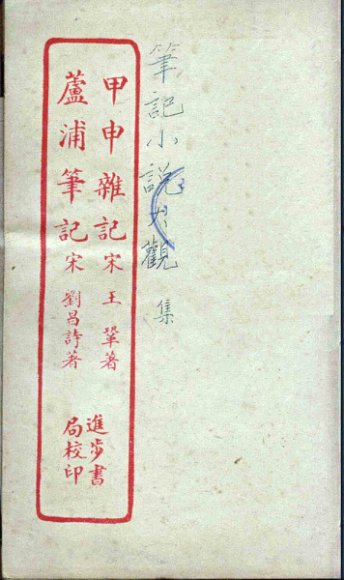 筆記小説大觀 集
甲申雜記 宋 王鞏著
蘆浦筆記 宋 劉昌詩著
進步書
局校印